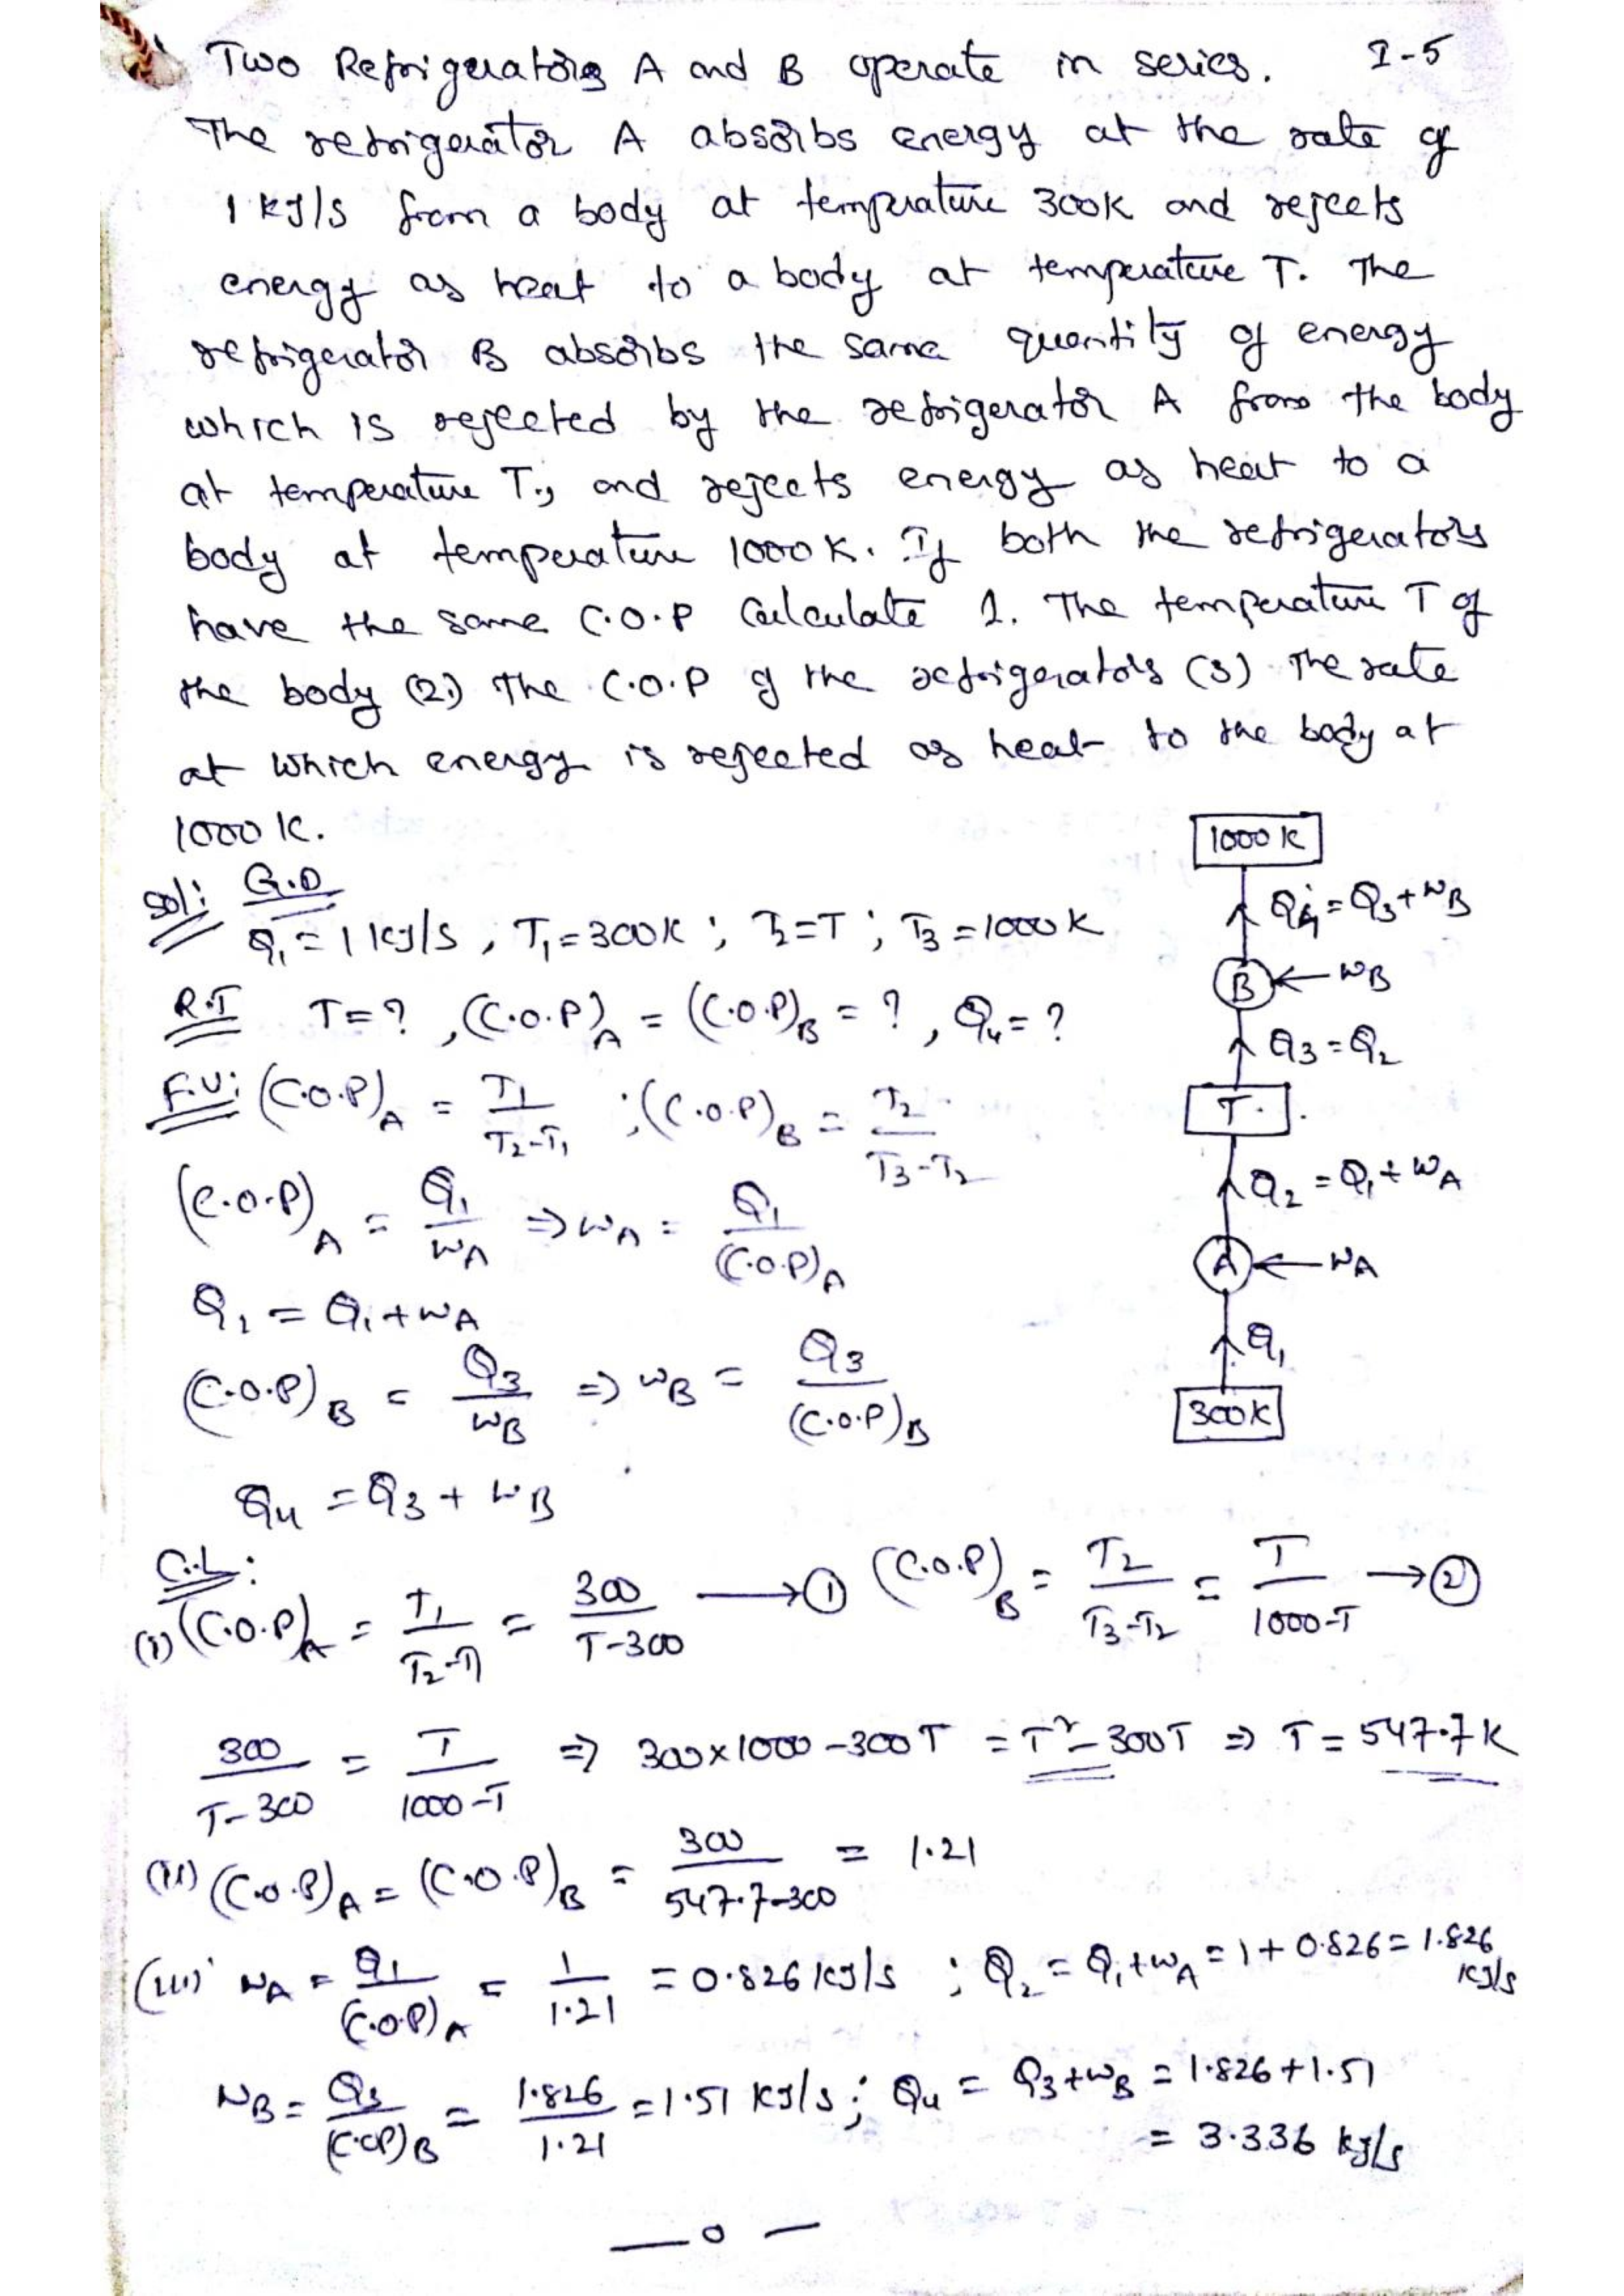 Two Refrigerators A and B operate in series. I-5
The refrigerator A absorbs energy at the rate of
1 kJ/s from a body at temperature 300K and rejects
energy as heat to a body at temperature T. The
refrigerator B absorbs the same quantity of energy
which is rejected by the refrigerator A from the body
at temperature T., and rejects energy as heat to a
body at temperature 1000 K. If both the refrigerators
have the same C.O.P Calculate 1. The temperature T of
the body (2.) The C.O.P of the refrigerators (3) The rate
at which energy is rejected as heat to the body at
1000 K.
1000 K
Sol: G.D
Q₁ = 1 kJ/s , T₁ = 300K ; T₂ = T ; T₃ = 1000 K
Q₄ = Q₃ + WB
B ← WB
R.T T = ? , (C.O.P)A = (C.O.P)B = ? , Q₄ = ?
Q₃ = Q₂
F.U: (C.O.P)A = T₁ / T₂-T₁ ; (C.O.P)B = T₂ / T₃-T₂
T.
(C.O.P)A = Q₁ / WA ⇒ WA = Q₁ / (C.O.P)A
Q₂ = Q₁ + WA
A ← WA
Q₂ = Q₁ + WA
Q₁
(C.O.P)B = Q₃ / WB ⇒ WB = Q₃ / (C.O.P)B
300K
Q₄ = Q₃ + WB
C.L:
(i) (C.O.P)A = T₁ / T₂-T₁ = 300 / T-300 → ① (C.O.P)B = T₂ / T₃-T₂ = T / 1000-T → ②
300 / T-300 = T / 1000-T ⇒ 300×1000 - 300T = T² - 300T ⇒ T = 547.7 K
(ii) (C.O.P)A = (C.O.P)B = 300 / 547.7-300 = 1.21
(iii) WA = Q₁ / (C.O.P)A = 1 / 1.21 = 0.826 kJ/s ; Q₂ = Q₁ + WA = 1 + 0.826 = 1.826 kJ/s
WB = Q₃ / (C.OP)B = 1.826 / 1.21 = 1.51 kJ/s ; Q₄ = Q₃ + WB = 1.826 + 1.51
= 3.336 kJ/s
— o —